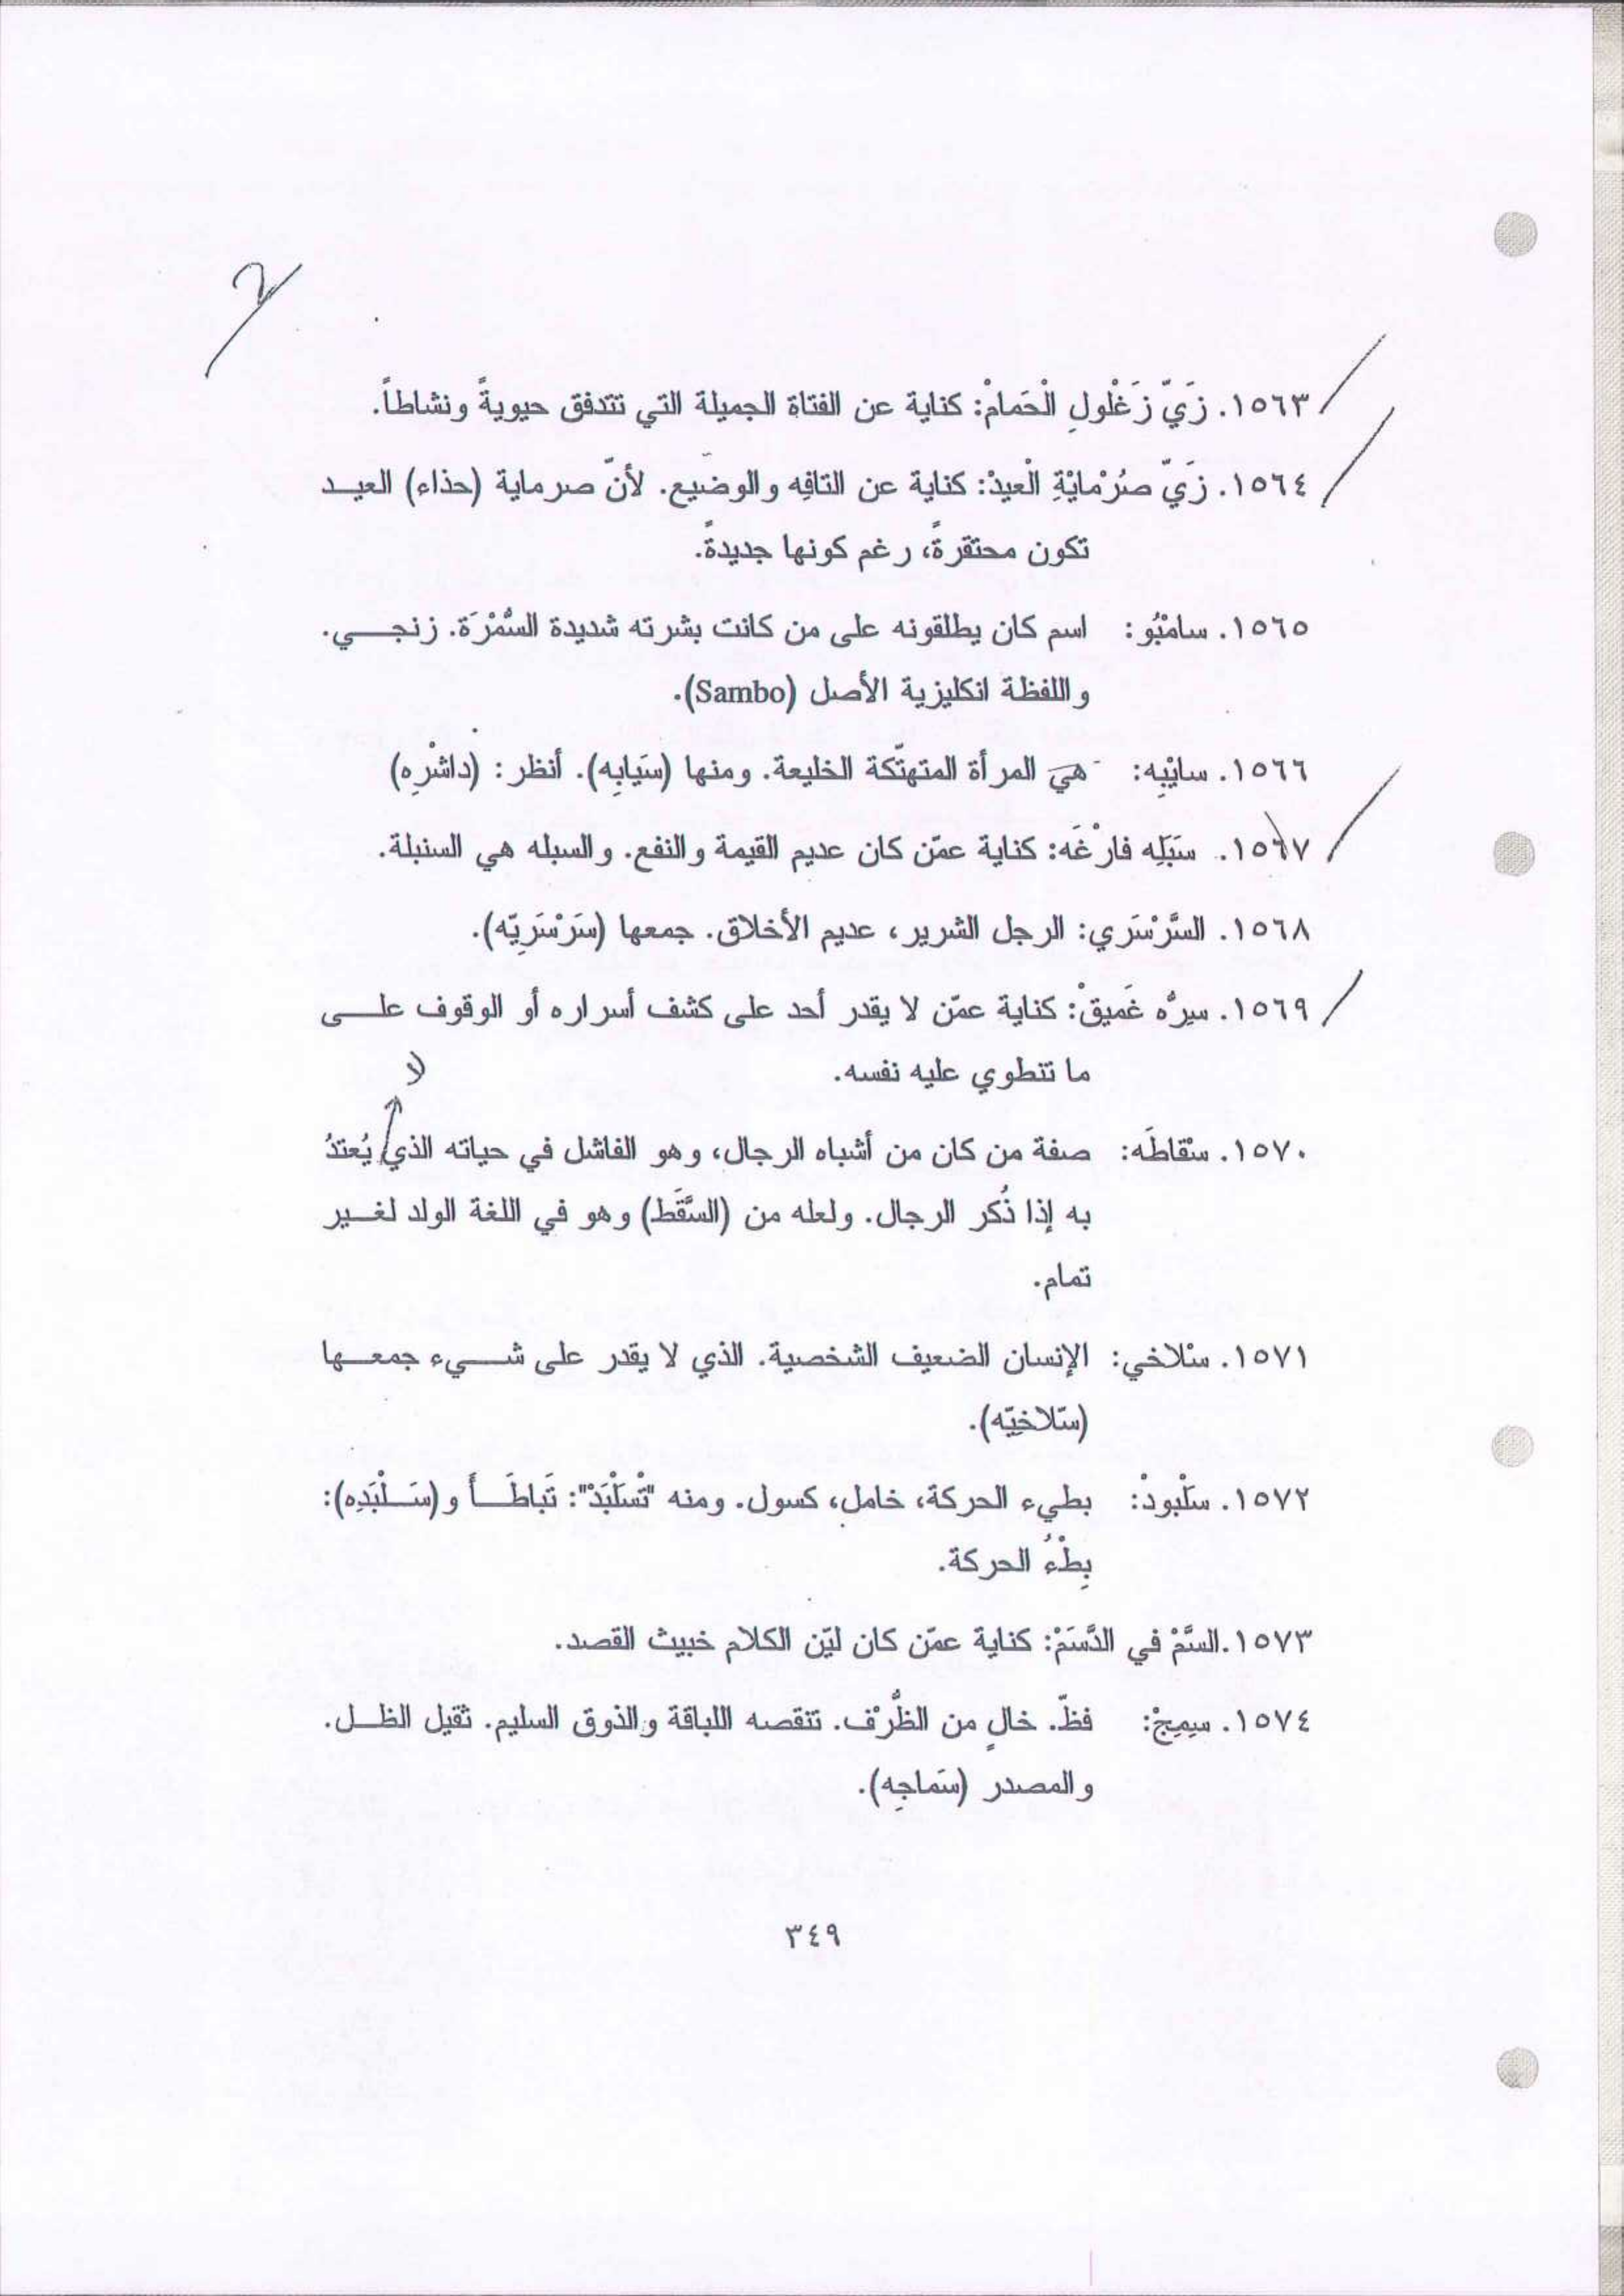 2
١٥٦٣. زَيّ زَغْلولِ الْحَمامْ: كناية عن الفتاة الجميلة التي تتدفق حيويةً ونشاطاً.
١٥٦٤. زَيّ صُرْمايْةِ الْعيدْ: كناية عن التافِه والوضيع. لأنّ صرماية (حذاء) العيد
تكون محتقرةً، رغم كونها جديدةً.
١٥٦٥. سامْبُو: اسم كان يطلقونه على من كانت بشرته شديدة السُّمْرَة. زنجي.
واللفظة انكليزية الأصل (Sambo).
١٥٦٦. سايْبِه: هيَ المرأة المتهتّكة الخليعة. ومنها (سَيابِه). أنظر: (داشْرِه)
١٥٦٧. سَبَلِه فارْغَه: كناية عمّن كان عديم القيمة والنفع. والسبله هي السنبلة.
١٥٦٨. السَّرْسَري: الرجل الشرير، عديم الأخلاق. جمعها (سَرْسَرِيّه).
١٥٦٩. سيرُّه غَميقْ: كناية عمّن لا يقدر أحد على كشف أسراره أو الوقوف على
ما تنطوي عليه نفسه.
لا
١٥٧٠. سْقاطَه: صفة من كان من أشباه الرجال، وهو الفاشل في حياته الذي يُعتدُ
به إذا ذُكر الرجال. ولعله من (السَّقَط) وهو في اللغة الولد لغير
تمام.
١٥٧١. سْلاخي: الإنسان الضعيف الشخصية. الذي لا يقدر على شيء جمعها
(سّلاخِيّه).
١٥٧٢. سلْبودْ: بطيء الحركة، خامل، كسول. ومنه "تْسَلْبَدْ": تَباطَأَ و(سَلْبَدِه):
بِطْءُ الحركة.
١٥٧٣.السَّمْ في الدَّسَمْ: كناية عمّن كان ليّن الكلام خبيث القصد.
١٥٧٤. سِمِجْ: فظّ. خالٍ من الظَّرْف. تنقصه اللباقة والذوق السليم. ثقيل الظل.
والمصدر (سَماجِه).
٣٤٩